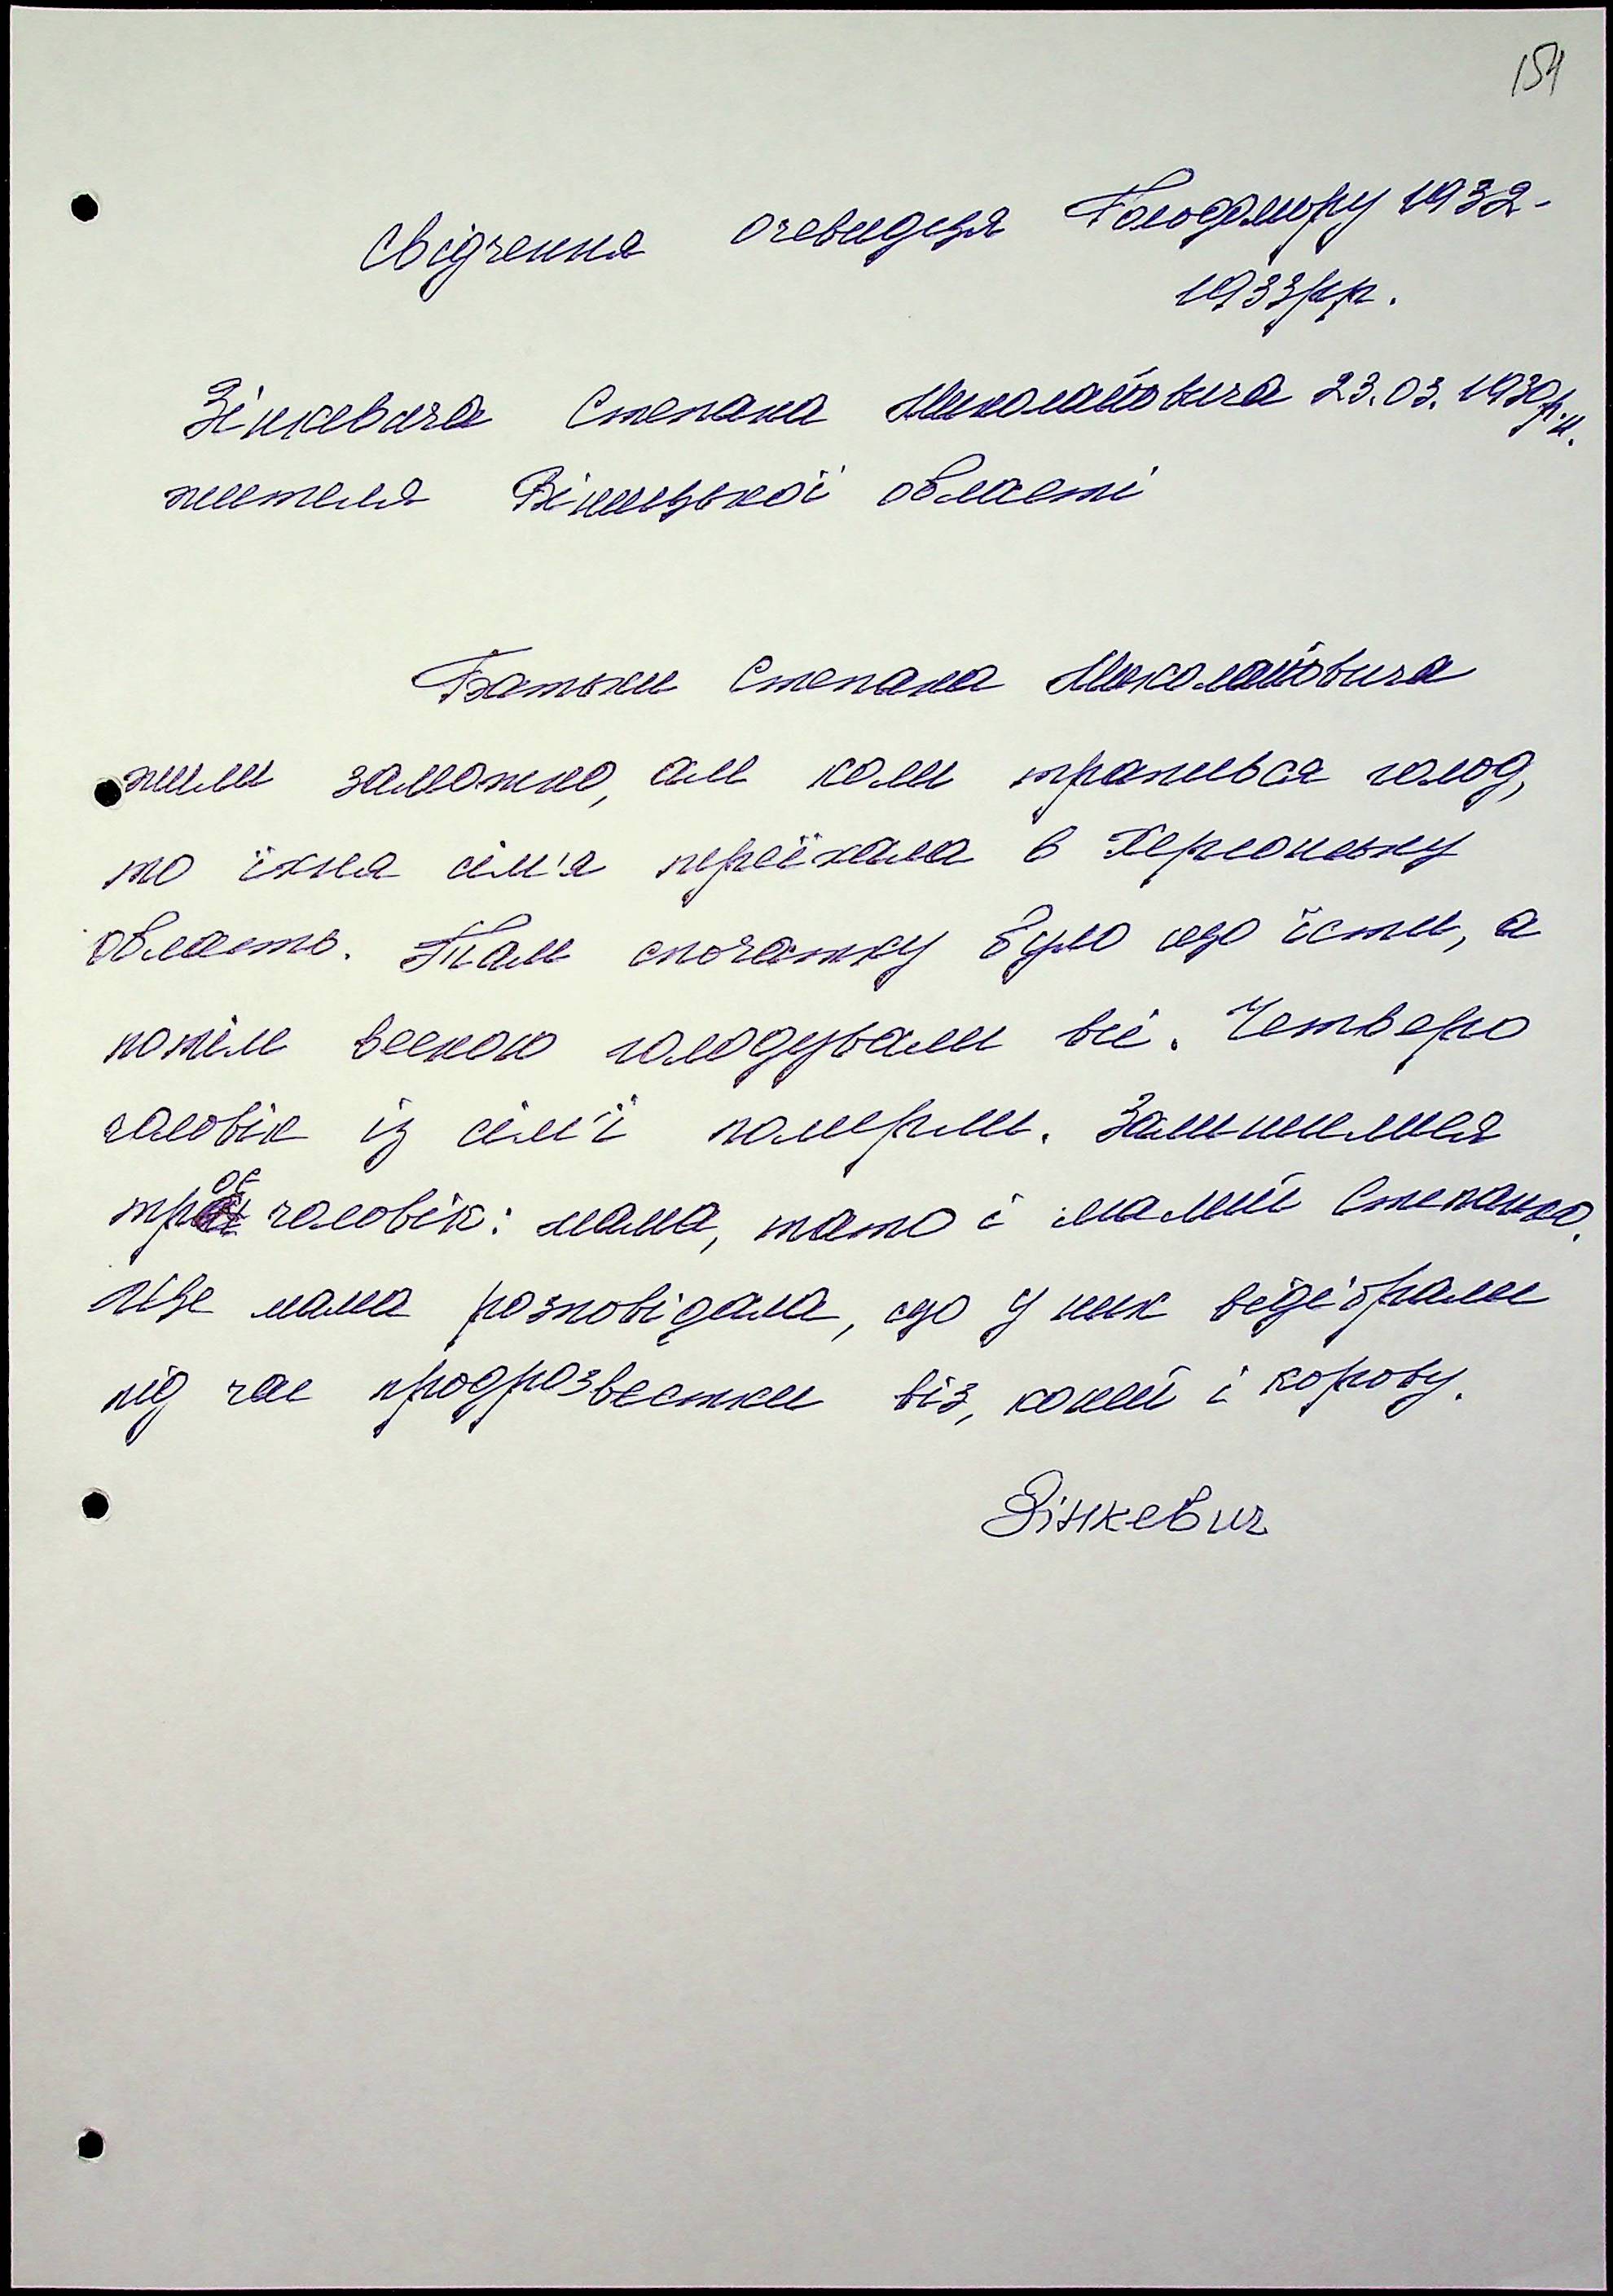 154
Свідчення очевидця Голодомору 1932-
1933рр.
Зінкевича Степана Миколайовича 23.03.1930р.н.
жителя Вінницької області
Батьки Степана Миколайовича
жили заможно, али коли трапився голод,
то їхня сім'я переїхала в Херсонську
область. Там спочатку було що їсти, а
потім весною голодували всі. Четверо
чоловік із сім'ї померли. Залишилися
троє чоловік: мама, тато і малий Степанко.
Ще мама розповідала, що у них відібрали
під час продрозвестки віз, коней і корову.
Зінкевич